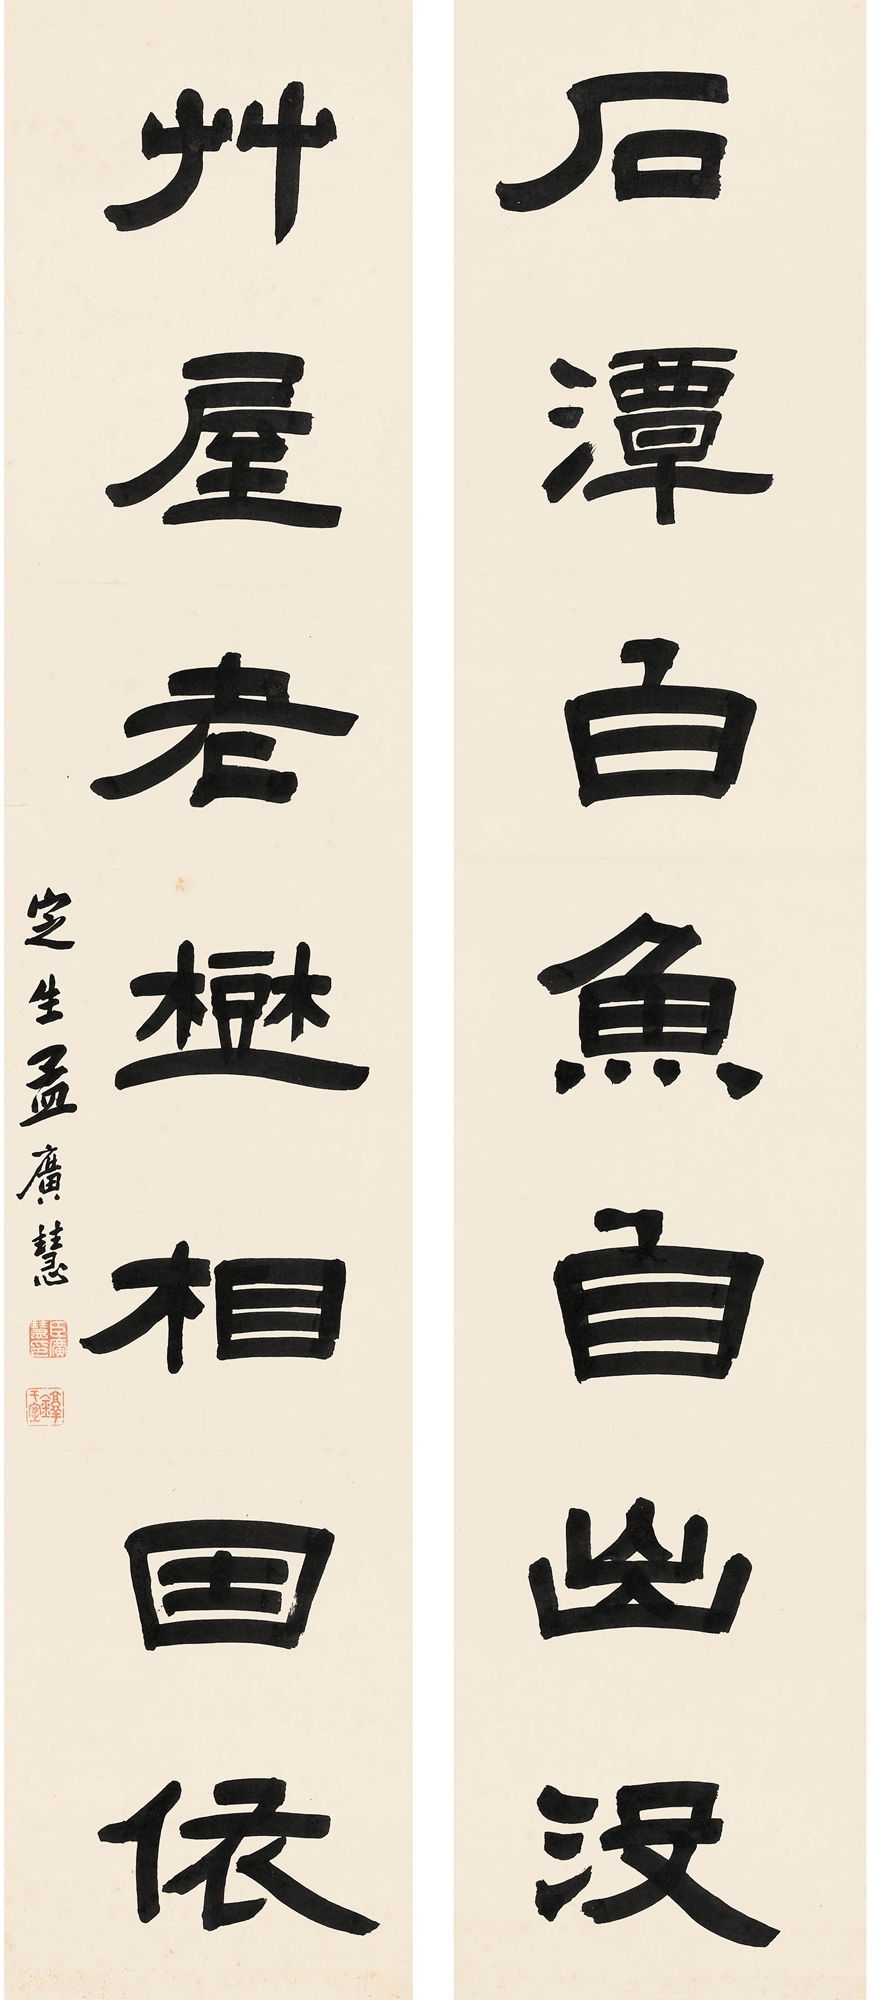 石潭白魚自出没
艸屋老樹相因依
定生孟廣慧
臣廣慧印